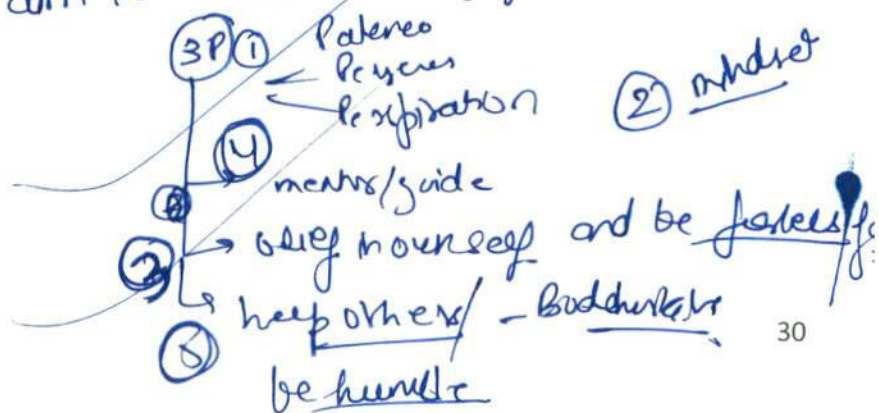 3P ①
Patence
Perseres
Perspiration
② mindset
④ mentor/guide
③ → belief in ourself and be fearless
⑤ help others/ - Boddhisatv
be humble
30